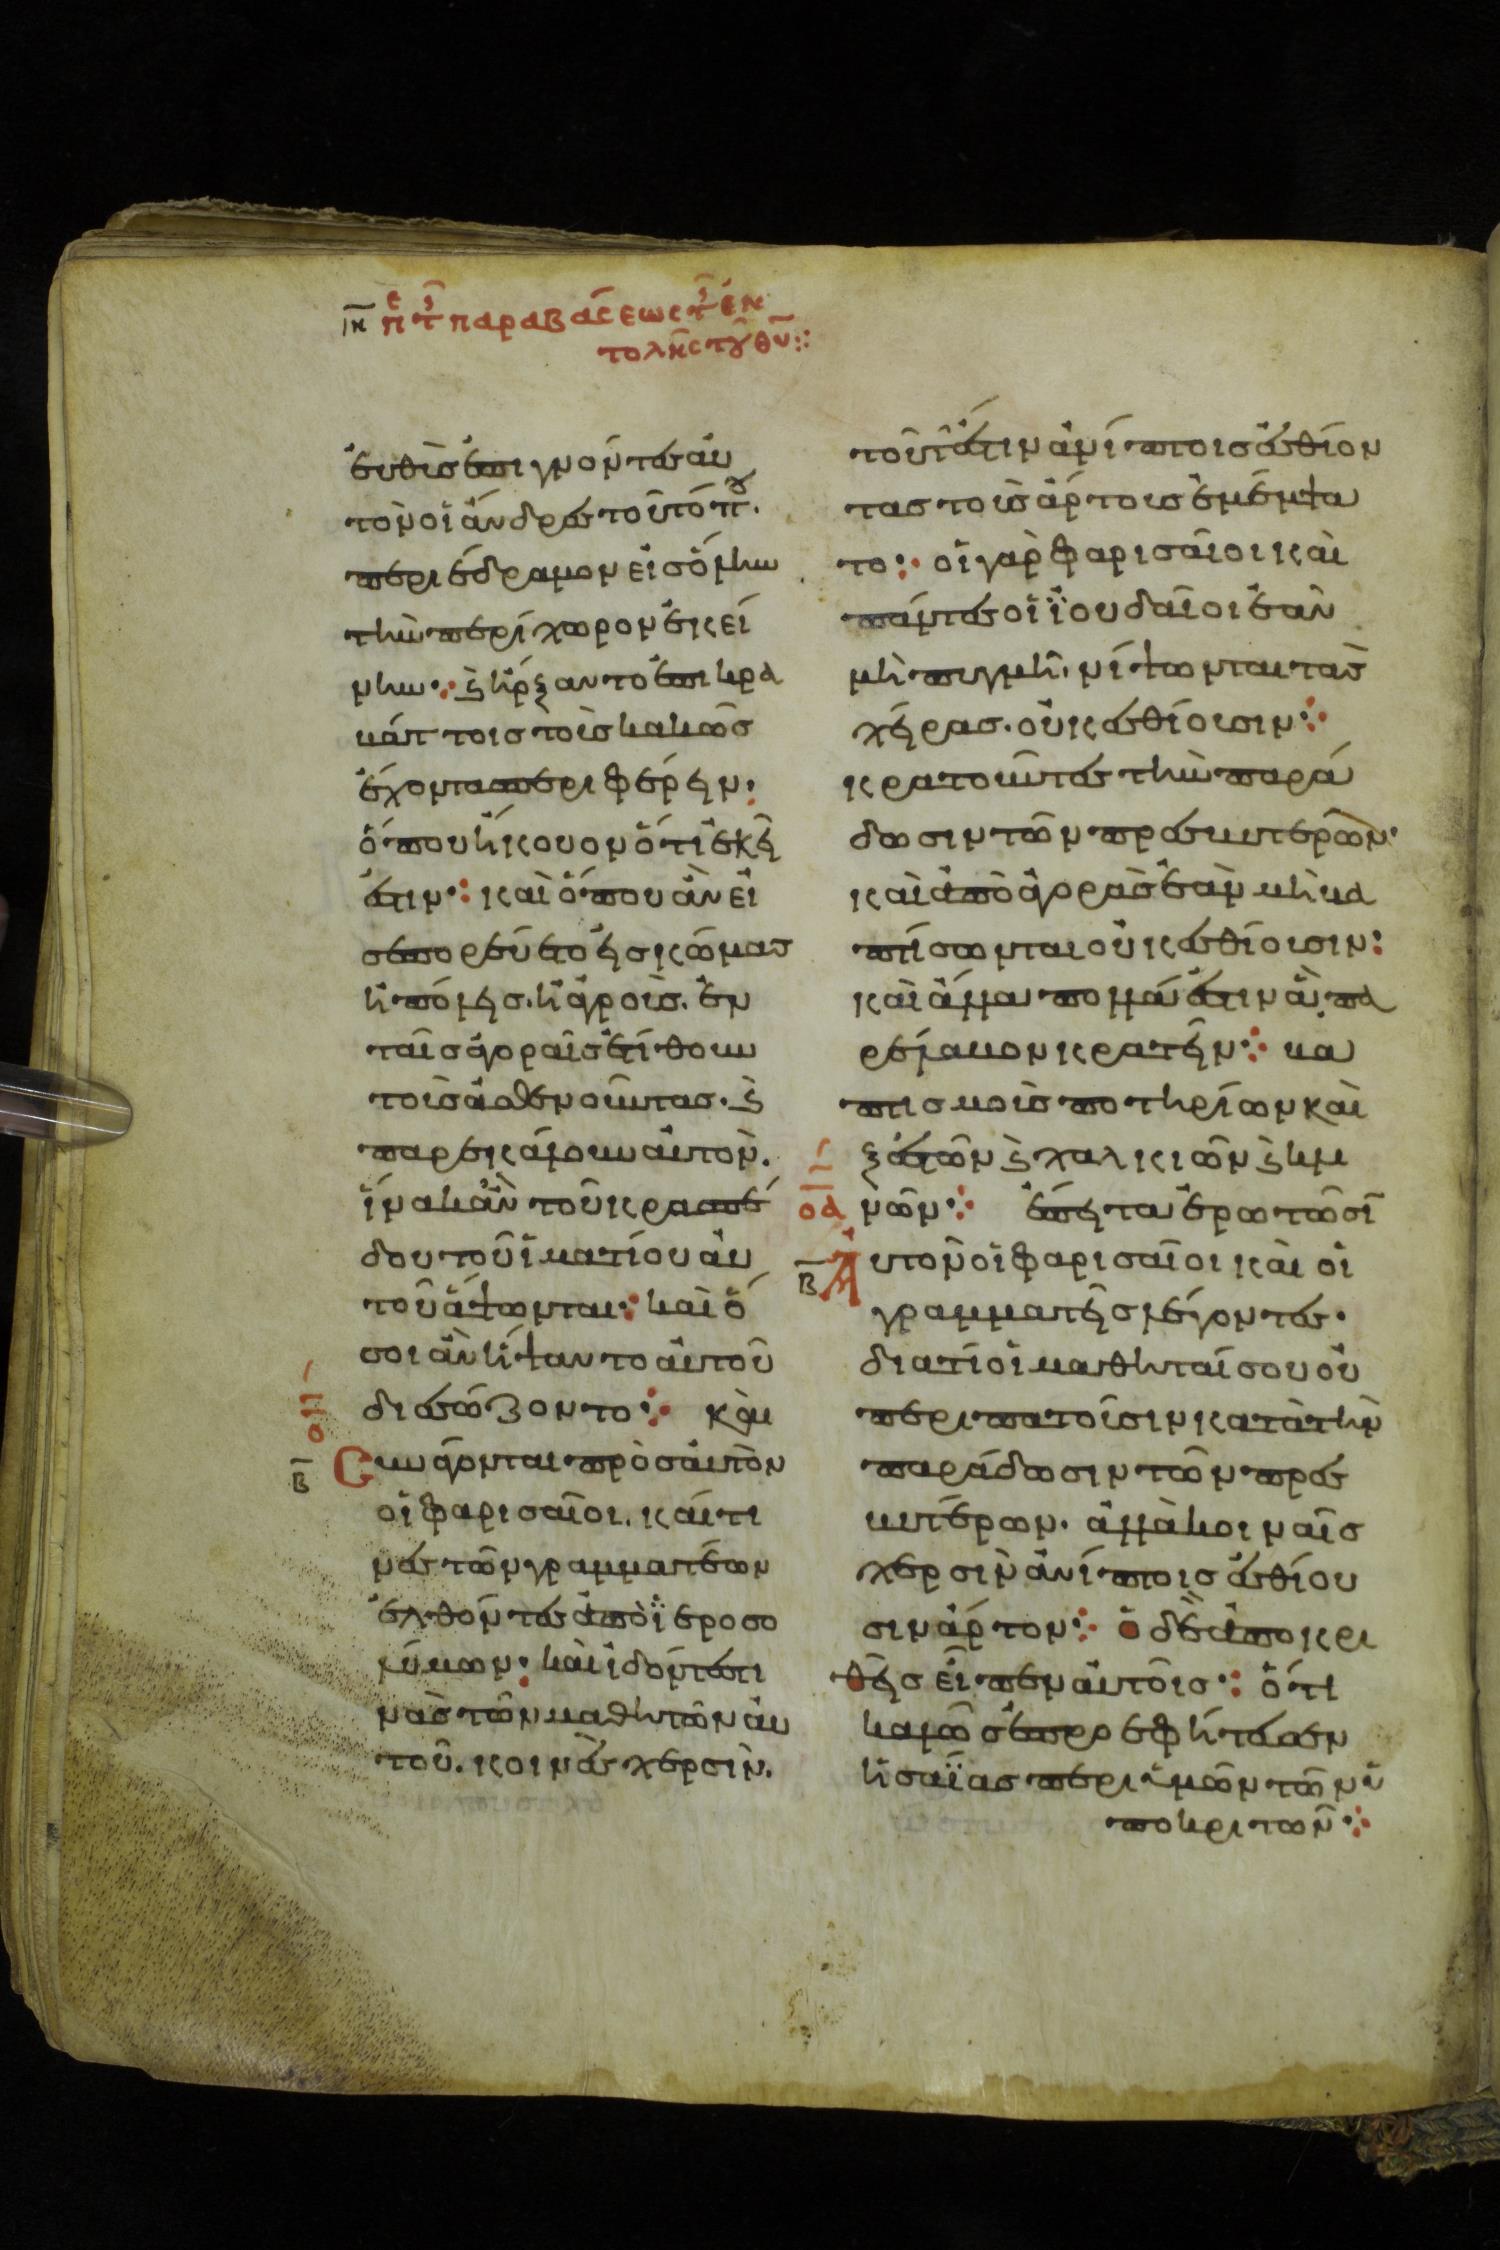 ιη περὶ τ παραβάσεως τ ἐν
τολῆς τοῦ θυ
ἐυθὺς ἐπιγνόντες ἀυ
τὸν οἱ ἄνδρες τοῦ τόπου.
περιέδραμον εἰς ὅλην
τὴν περίχωρον ἐκεί
νην· καὶ ἤρξαντο ἐπὶ κρα
βάττοις τοὺς κακῶς
ἔχοντας περιφέρειν·
ὅπου ἤκουον ὅτι ἐκεῖ
ἐστιν· καὶ ὅπου ἂν εἰ
σεπορεύετο εἰς κώμας
ἢ πόλεις. ἢ ἀγροὺς. ἐν
ταῖς ἀγοραῖς ἐτίθουν
τοὺς ἀσθενοῦντας. καὶ
παρεκάλουν αὐτὸν.
ἵνα κἂν τοῦ κρασπέ
δου τοῦ ἱματίου ἀυ
τοῦ ἅψωνται· καὶ ὅ
σοι ἂν ἥπταντο αὐτοῦ
διεσώζοντο·
οη
β
Συνάγονται πρὸς αὐτὸν
οἱ φαρισαῖοι. καί τι
νες τῶν γραμματέων
ἐλθόντες ἀπὸ ἱεροσο
λύμων· καὶ ἰδόντες τι
νὰς τῶν μαθητῶν ἀυ
τοῦ. κοιναῖς χερσὶν.
τοῦτέστιν ἀνίπτοις ἐσθίον
τας τοὺς ἄρτους ἐμέμψα
το· οἱ γὰρ φαρισαῖοι καὶ
πάντες οἱ ἰουδαῖοι ἐαν
μὴ πυγμῆ νίψωνται τὰς
χεῖρας. οὐκ ἐσθίουσιν·
κρατοῦντες τὴν παρά
δοσιν τῶν πρεσβυτέρων·
καὶ ἀπὸ ἀγορᾶς ἐὰν μὴ βα
πτίσωνται οὐκ ἐσθίουσιν·
καὶ ἄλλα πολλά ἐστιν ἃ πα
ρέλαβον κρατεῖν· βα
πτισμοὺς ποτηρίων καὶ
ξεστῶν καὶ χαλκιῶν καὶ κλι
νῶν· ἔπειτα ἐρωτῶσϊ
οα
β
Αυτὸν οἱ φαρισαῖοι καὶ οἱ
γραμματεῖς λέγοντες·
διατί οἱ μαθηταί σου οὐ
περιπατοῦσιν κατὰ τὴν
παράδοσιν τῶν πρεσ
βυτέρων· ἀλλὰ κοιναῖς
χερσὶν ἀνίπτοις ἐσθίου
σιν ἄρτον· ὁ δὲ ἀποκρι
θεὶς εἶπεν αὐτοῖς· ὅτι
καλῶς ἐπροεφήτευσεν
ἡσαΐας περὶ ὑμῶν τῶν ὑ
ποκριτῶν·